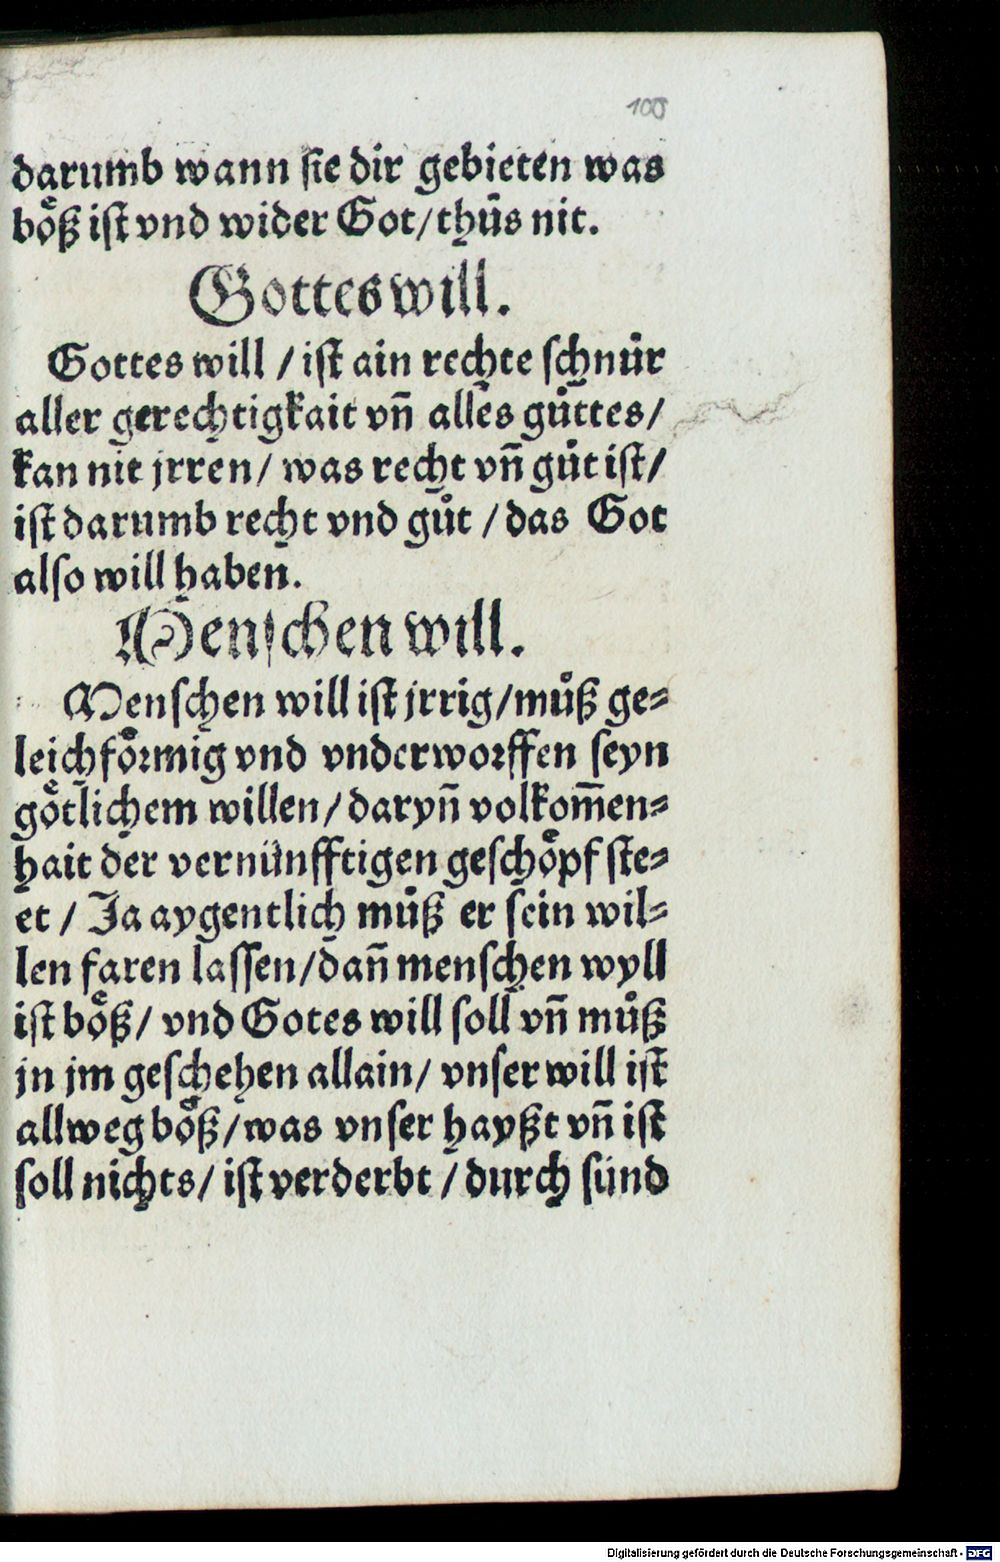 100
darumb wann sie dir gebieten was
boͤß ist vnd wider Got/thuͤs nit.
Gottes will.
Gottes will / ist ain rechte schnuͦr
aller gerechtigkait vñ alles guͦttes/
kan nit jrren/ was recht vñ guͦt ist/
ist darumb recht vnd guͦt / das Got
also will haben.
Menschen will.
Menschen will ist jrrig/muͦß ge⸗
leichfoͤrmig vnd vnderworffen seyn
goͤtlichem willen/ daryñ volkom̃en⸗
hait der vernünfftigen geschoͤpf ste⸗
et / Ja aygentlich muͦß er sein wil⸗
len faren lassen/dañ menschen wyll
ist boͤß/ vnd Gotes will soll vñ muͦß
jn jm geschehen allain/ vnser will ist
allweg boͤß/was vnser hayßt vñ ist
soll nichts/ ist verderbt / durch sünd
Digitalisierung gefördert durch die Deutsche Forschungsgemeinschaft - DFG